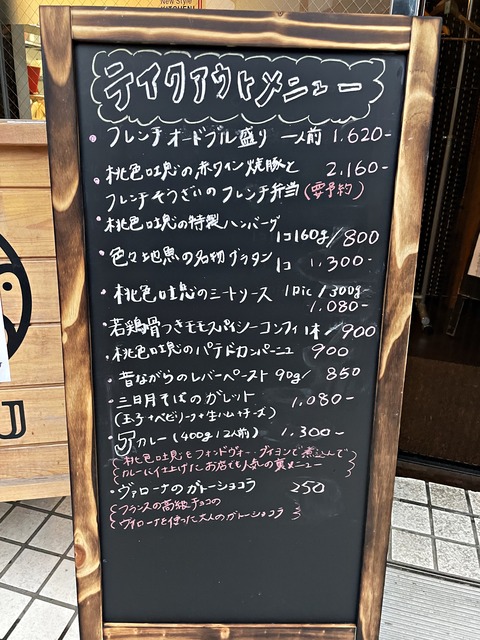 New Style
KITCHEN
テイクアウトメニュー
・フレンチオードブル盛り 一人前 1.620-
・桃色吐息の赤ワイン焼豚と 2.160-
フレンチそうざいのフレンチ弁当(要予約)
・桃色吐息の特製ハンバーグ
1コ160g/800
・色々地魚の名物グラタン 1コ 1.300-
・桃色吐息のミートソース 1pic/300g
1.080-
・若鶏骨つきモモスパイシーコンフィ 1本/900
・桃色吐息のパテドカンパーニュ 900
・昔ながらのレバーペースト 90g/ 850
・三日月そばのガレット 1,080-
(玉子+ベビリーフ+生ハム+チーズ)
・Jカレー(400g 2人前) 1.300-
桃色吐息をフォンドヴォー・ブイヨンで煮込んで
カレーに仕上げたお店でも人気の裏メニュー
・ヴァローナのガトーショコラ 250
フランスの高級チョコの
ヴァローナを使った大人のガトーショコラ
J